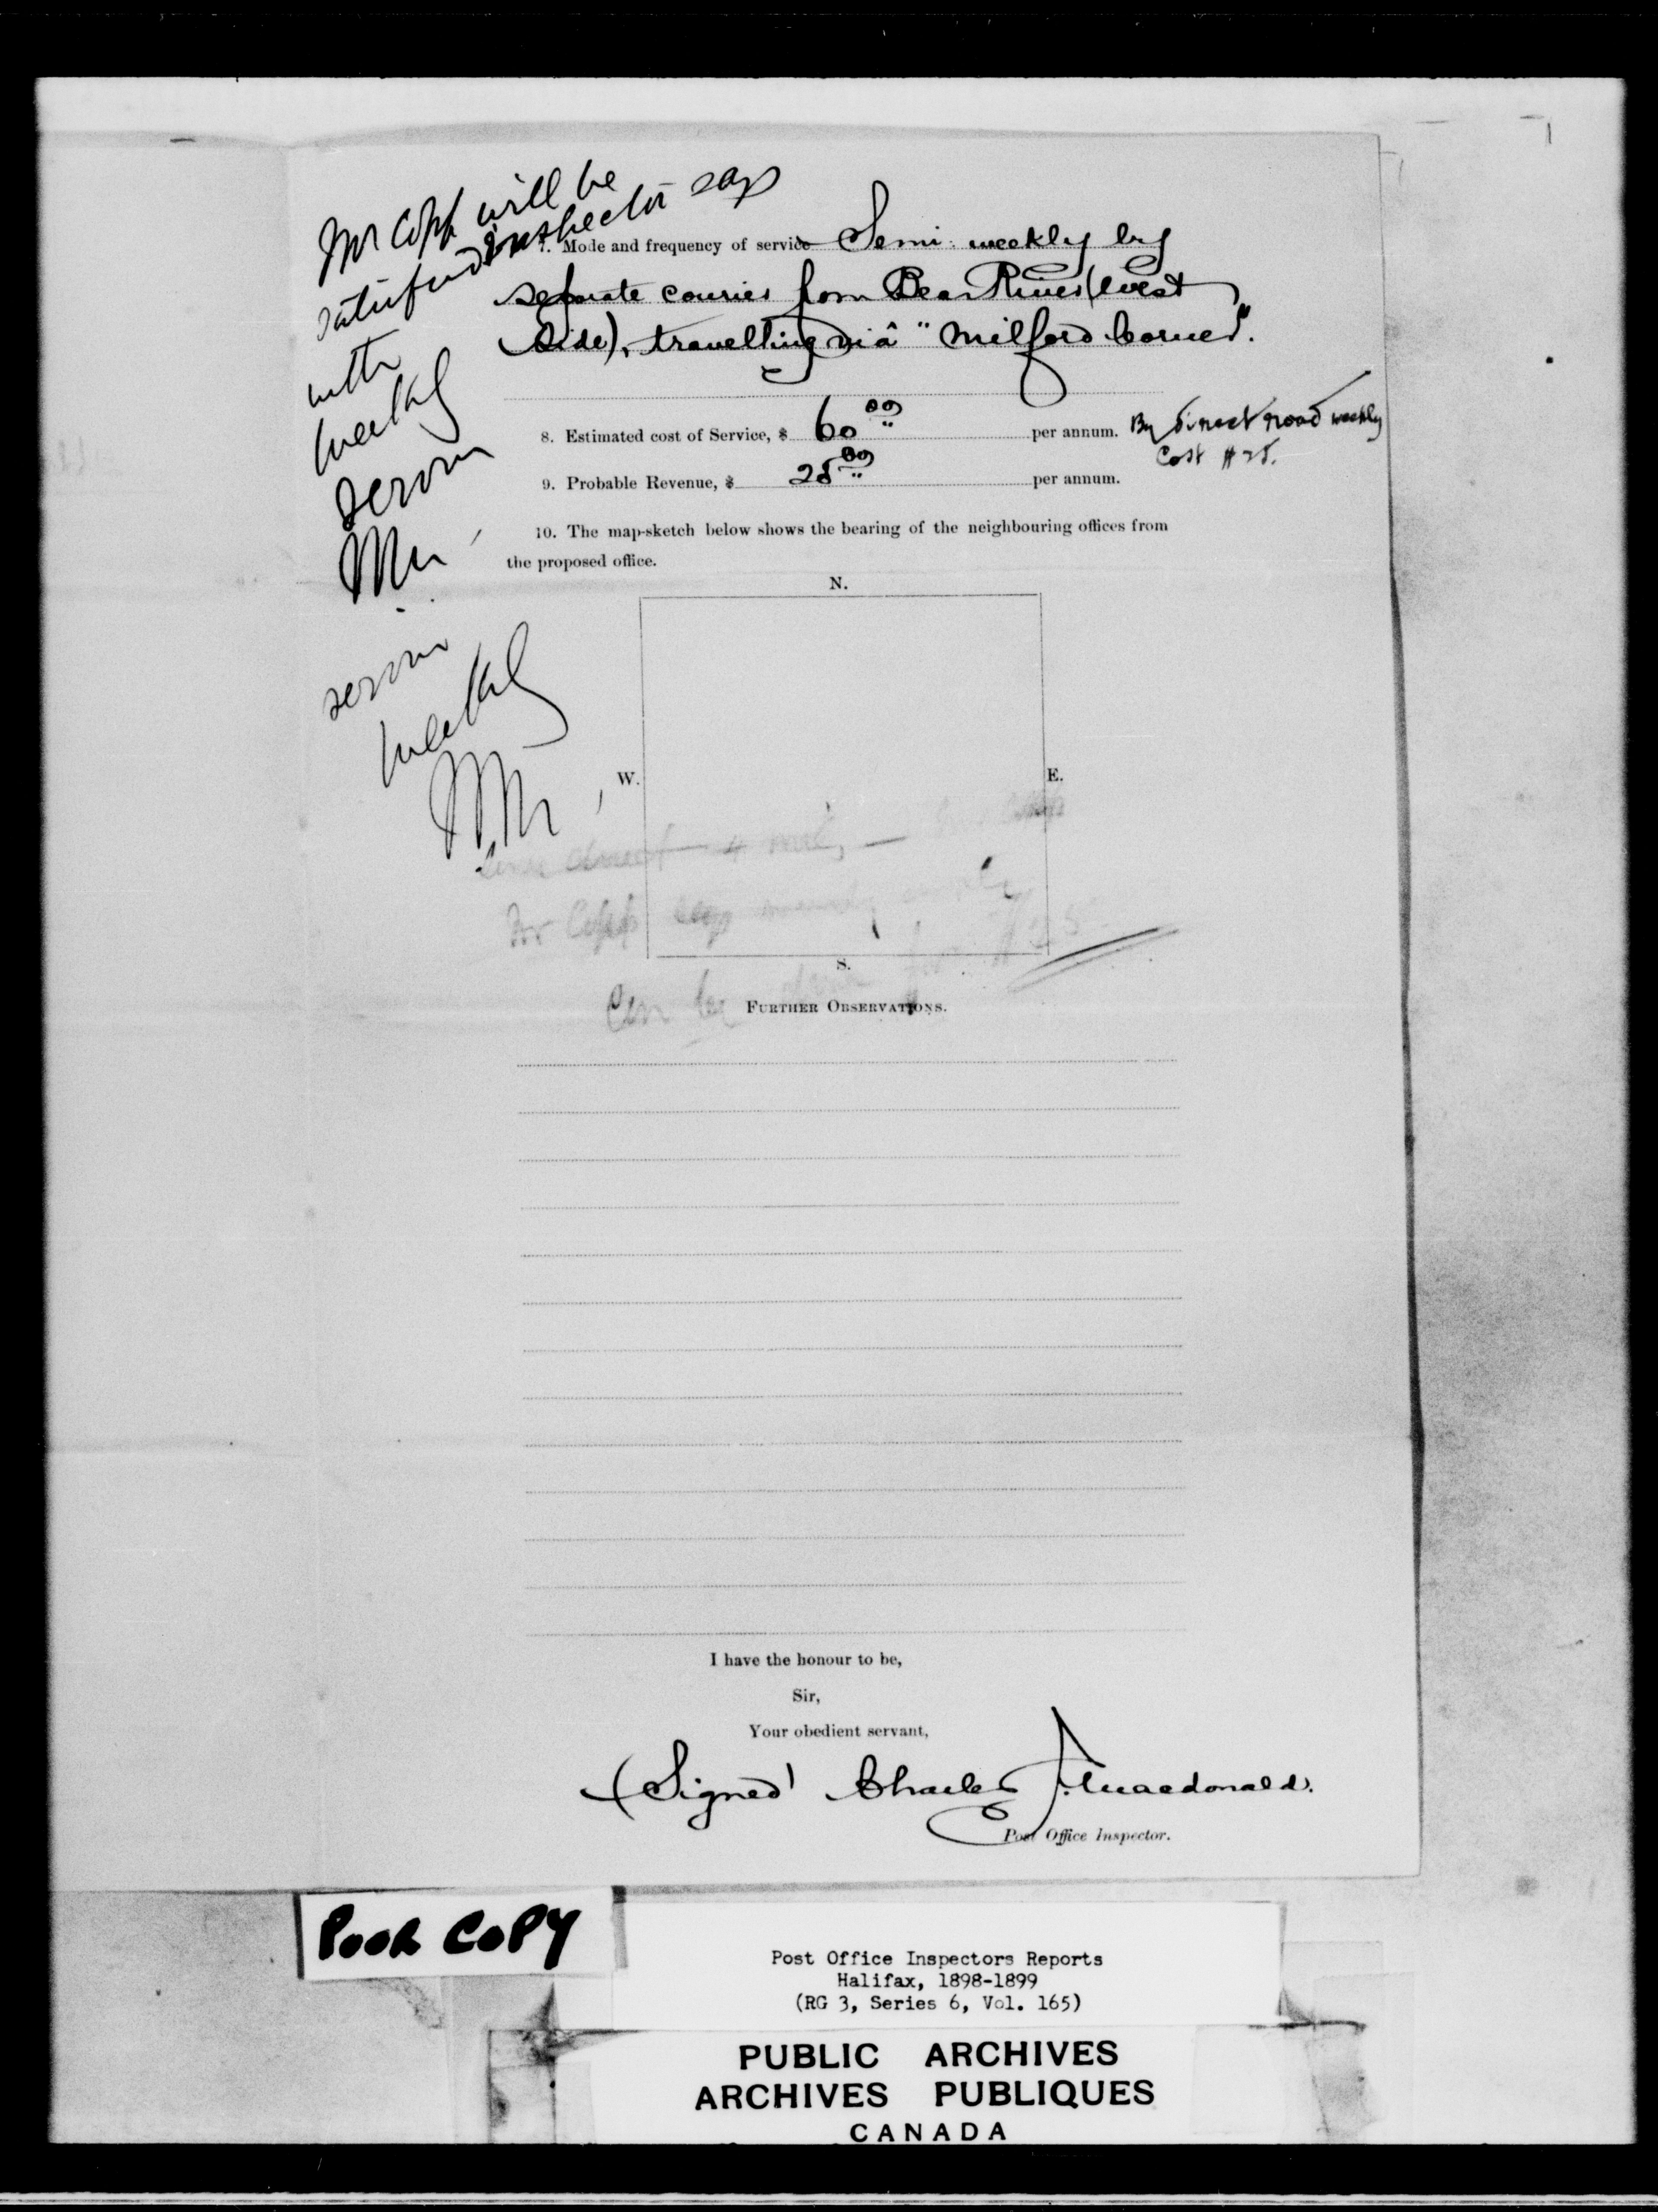 Mr Copp will be
satisfied inspector says
with
weekly
service
Mu
service
weekly
Mu
7. Mode and frequency of service Semi-weekly by
separate courier from Bear River (West
Side), travelling viâ "Milford Corner".
8. Estimated cost of Service, $ 60 00 per annum. By direct road weekly
Cost $25.
9. Probable Revenue, $ 25 00 per annum.
10. The map-sketch below shows the bearing of the neighbouring offices from
the proposed office.
N.
W. E.
direct 4 mile,
Mr Copp says
S.
Can be done for $25
FURTHER OBSERVATIONS.
I have the honour to be,
Sir,
Your obedient servant,
(Signed) Charles J. Macdonald.
Post Office Inspector.
POOR COPY
Post Office Inspectors Reports
Halifax, 1898-1899
(RG 3, Series 6, Vol. 165)
PUBLIC ARCHIVES
ARCHIVES PUBLIQUES
CANADA